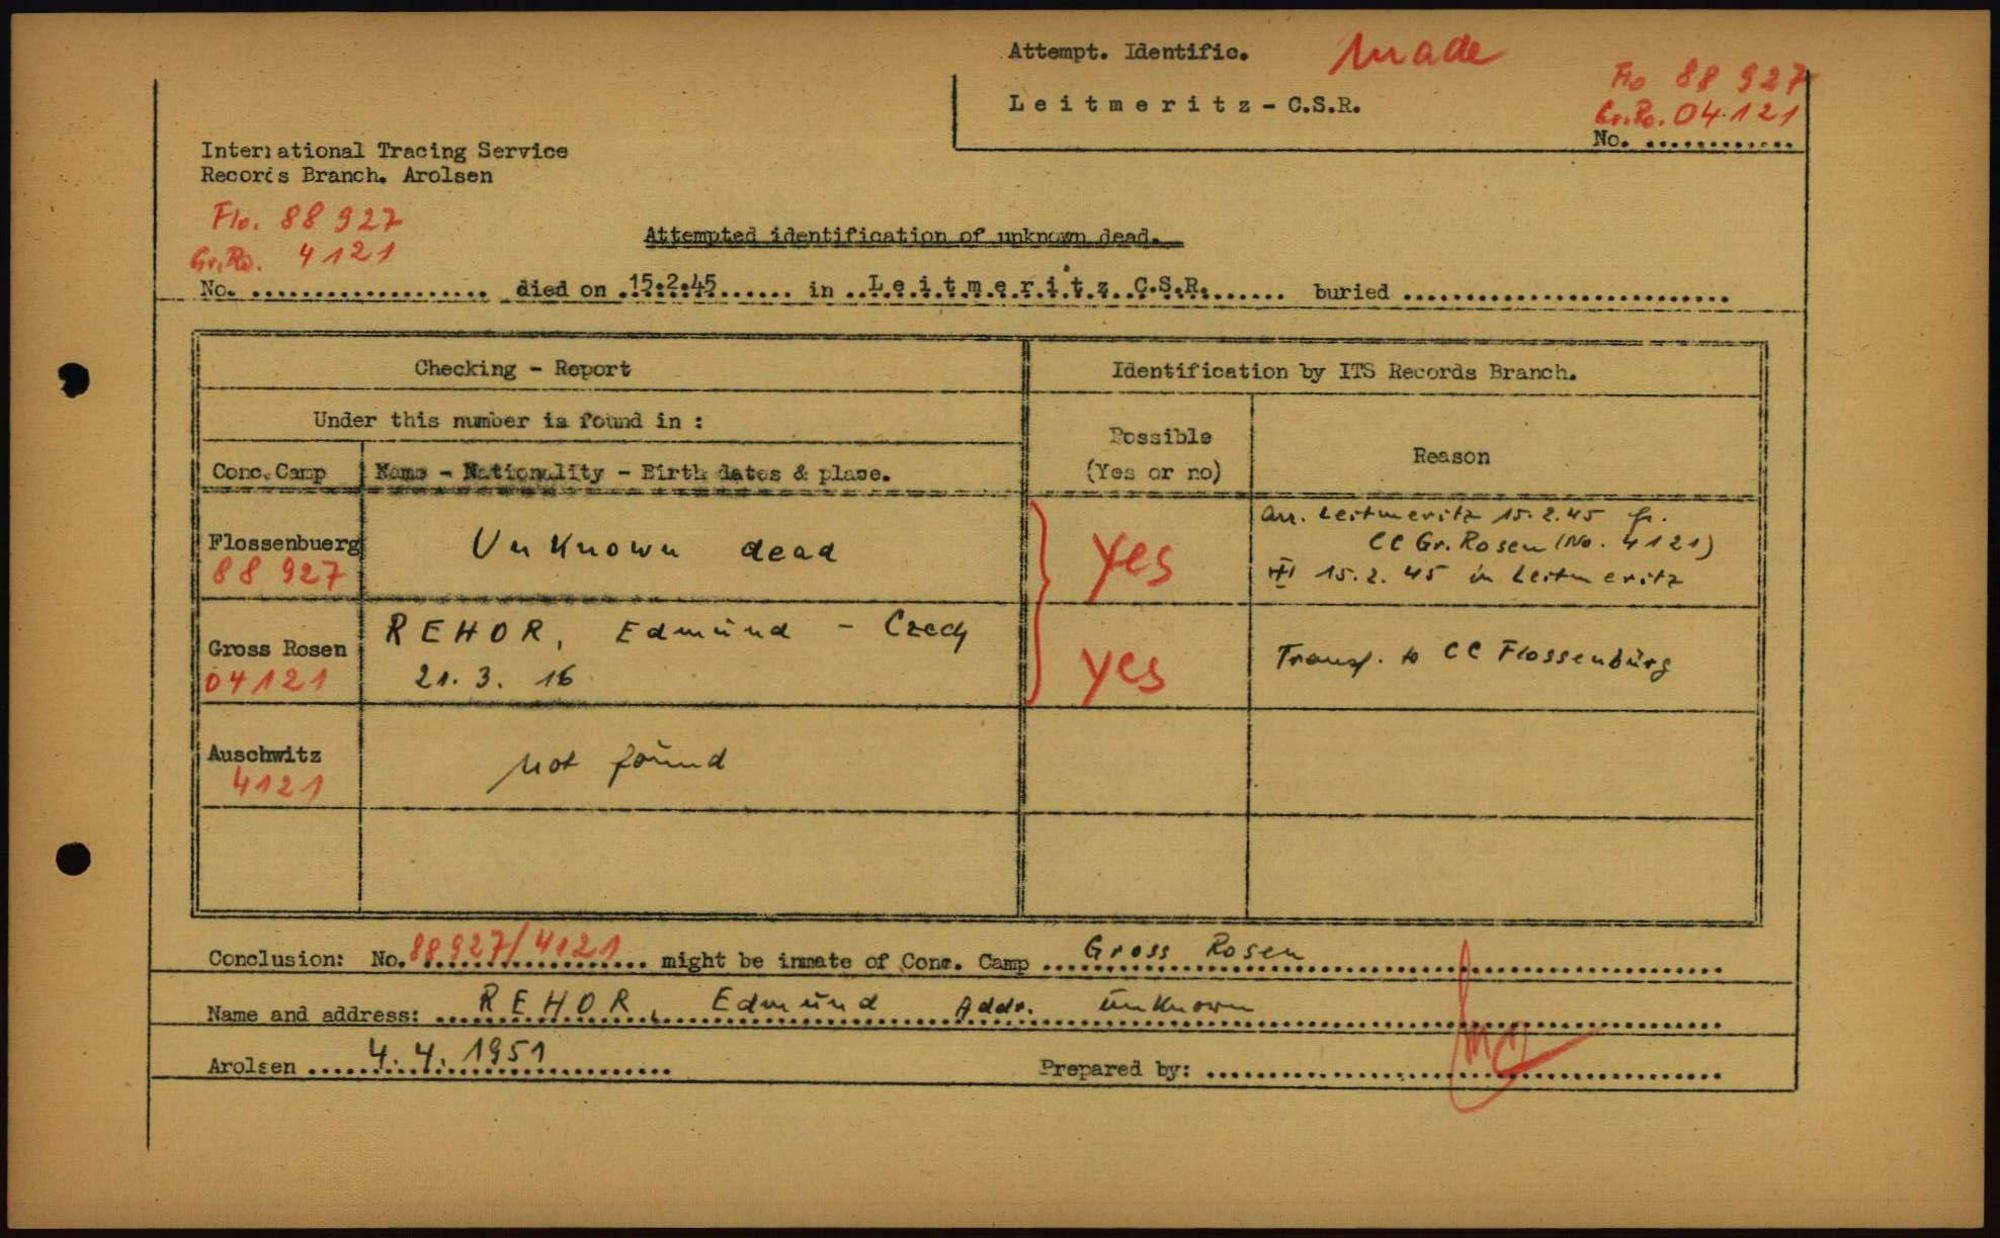 Attempt. Identific. Made
Leitmeritz - C.S.R.
Flo 88 927
Gr.Ro. 04121
No. ............
International Tracing Service
Records Branch. Arolsen
Flo. 88 927
Gr.Ro. 4121
Attempted identification of unknown dead.
No. ................... died on .15.2.45...... in ..Leitmeritz C.S.R....... buried ..........................
Checking - Report
Identification by ITS Records Branch.
Under this number is found in :
Possible
(Yes or no)
Reason
Conc.Camp
Name - Nationality - Birth dates & place.
Flossenbuerg
88 927
Unknown dead
yes
arr. Leitmeritz 15.2.45 fr.
CC Gr. Rosen (No. 4121)
15.2.45 in Leitmeritz
Gross Rosen
04121
REHOR, Edmund - Czech
21. 3. 16
yes
Transf. to CC Flossenbürg
Auschwitz
4121
not found
Conclusion: No. 88927/4121 might be inmate of Conc. Camp Gross Rosen
Name and address: REHOR, Edmund Addr. unknown
Arolsen 4. 4. 1951
Prepared by: ..........................